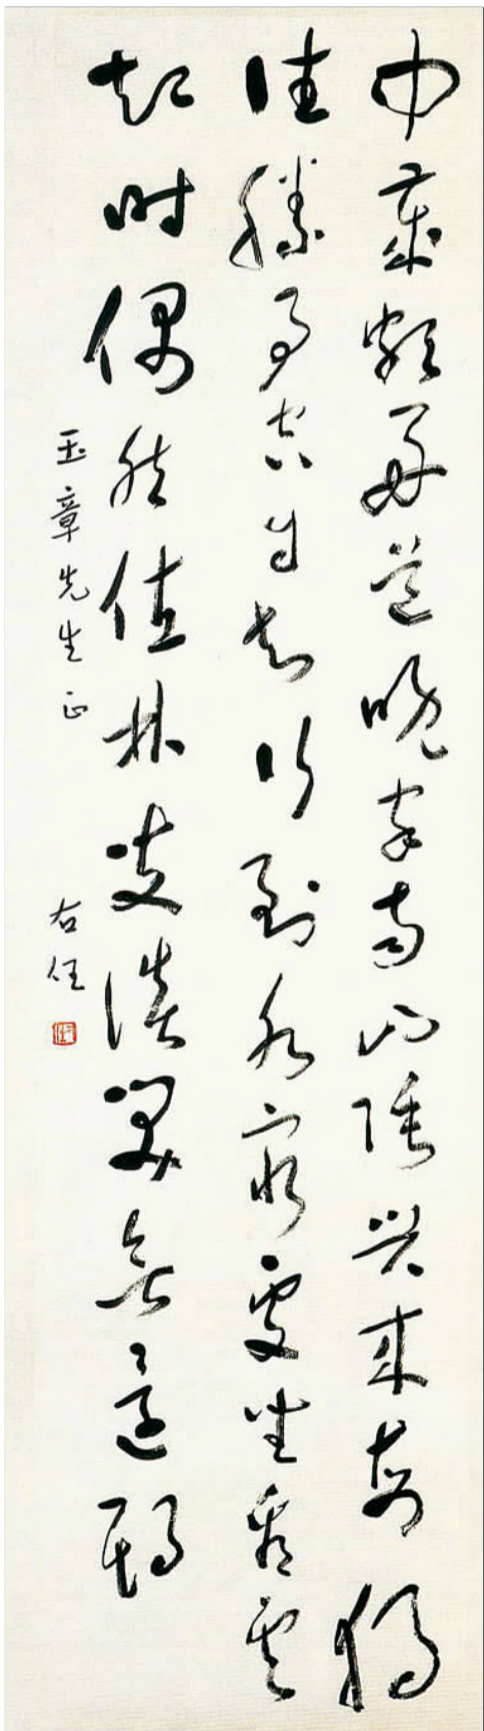 中歲頗好道晚家南山陲興來每獨
往勝事空自知行到水窮處坐看雲
起時偶然值林叟談笑無還期
玉章先生正
右任